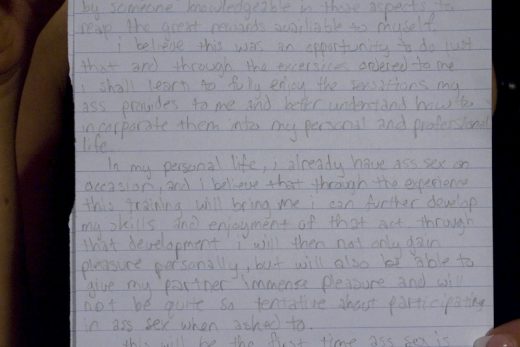 by someone knowledgeable in those aspects to
reap the great rewards available to myself.
i believe this was an opportunity to do just
that and through the excersises ordered to me
i shall learn to fully enjoy the sensations my
ass provides to me and better understand how to
incorporate them into my personal and professional
life.
In my personal life, i already have ass sex on
occasion, and i believe that through the experience
this training will bring me i can further develop
my skills and enjoyment of that act through
that development i will then not only gain
pleasure personally, but will also be able to
give my partner immense pleasure and will
not be quite so tentative about participating
in ass sex when asked to.
this will be the first time ass sex is